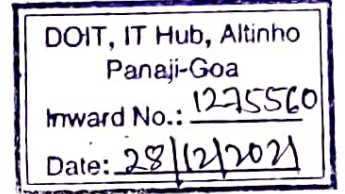 DOIT, IT Hub, Altinho
Panaji-Goa
Inward No.: 1275560
Date: 28/12/2021